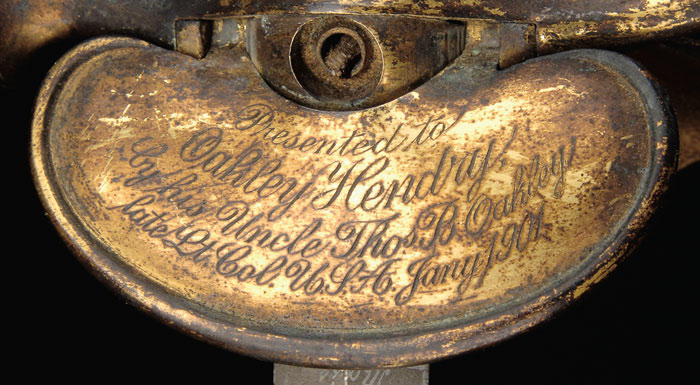 Presented to
Oakley Hendry,
by his Uncle Thos. B. Oakley
late Lt. Col. U.S.A. Jany 1901